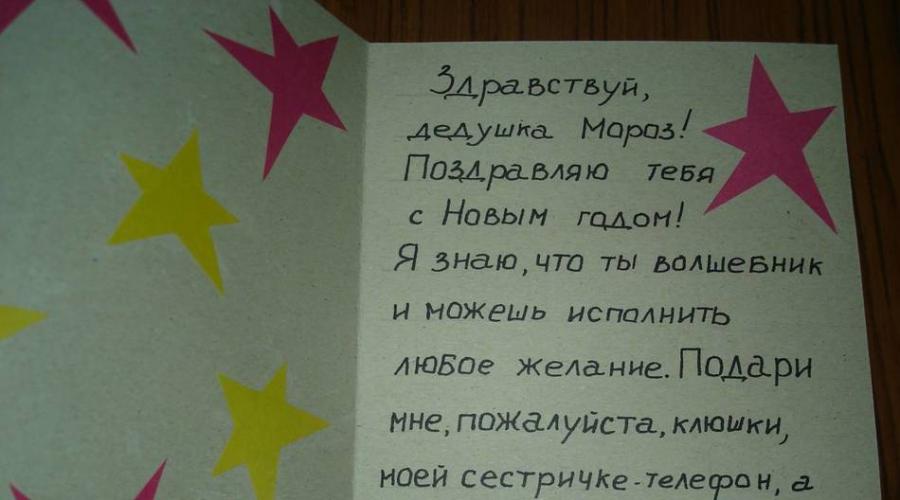 Здравствуй,
дедушка Мороз!
Поздравляю тебя
с Новым годом!
Я знаю, что ты волшебник
и можешь исполнить
любое желание. Подари
мне, пожалуйста, клюшки,
моей сестричке-телефон, а